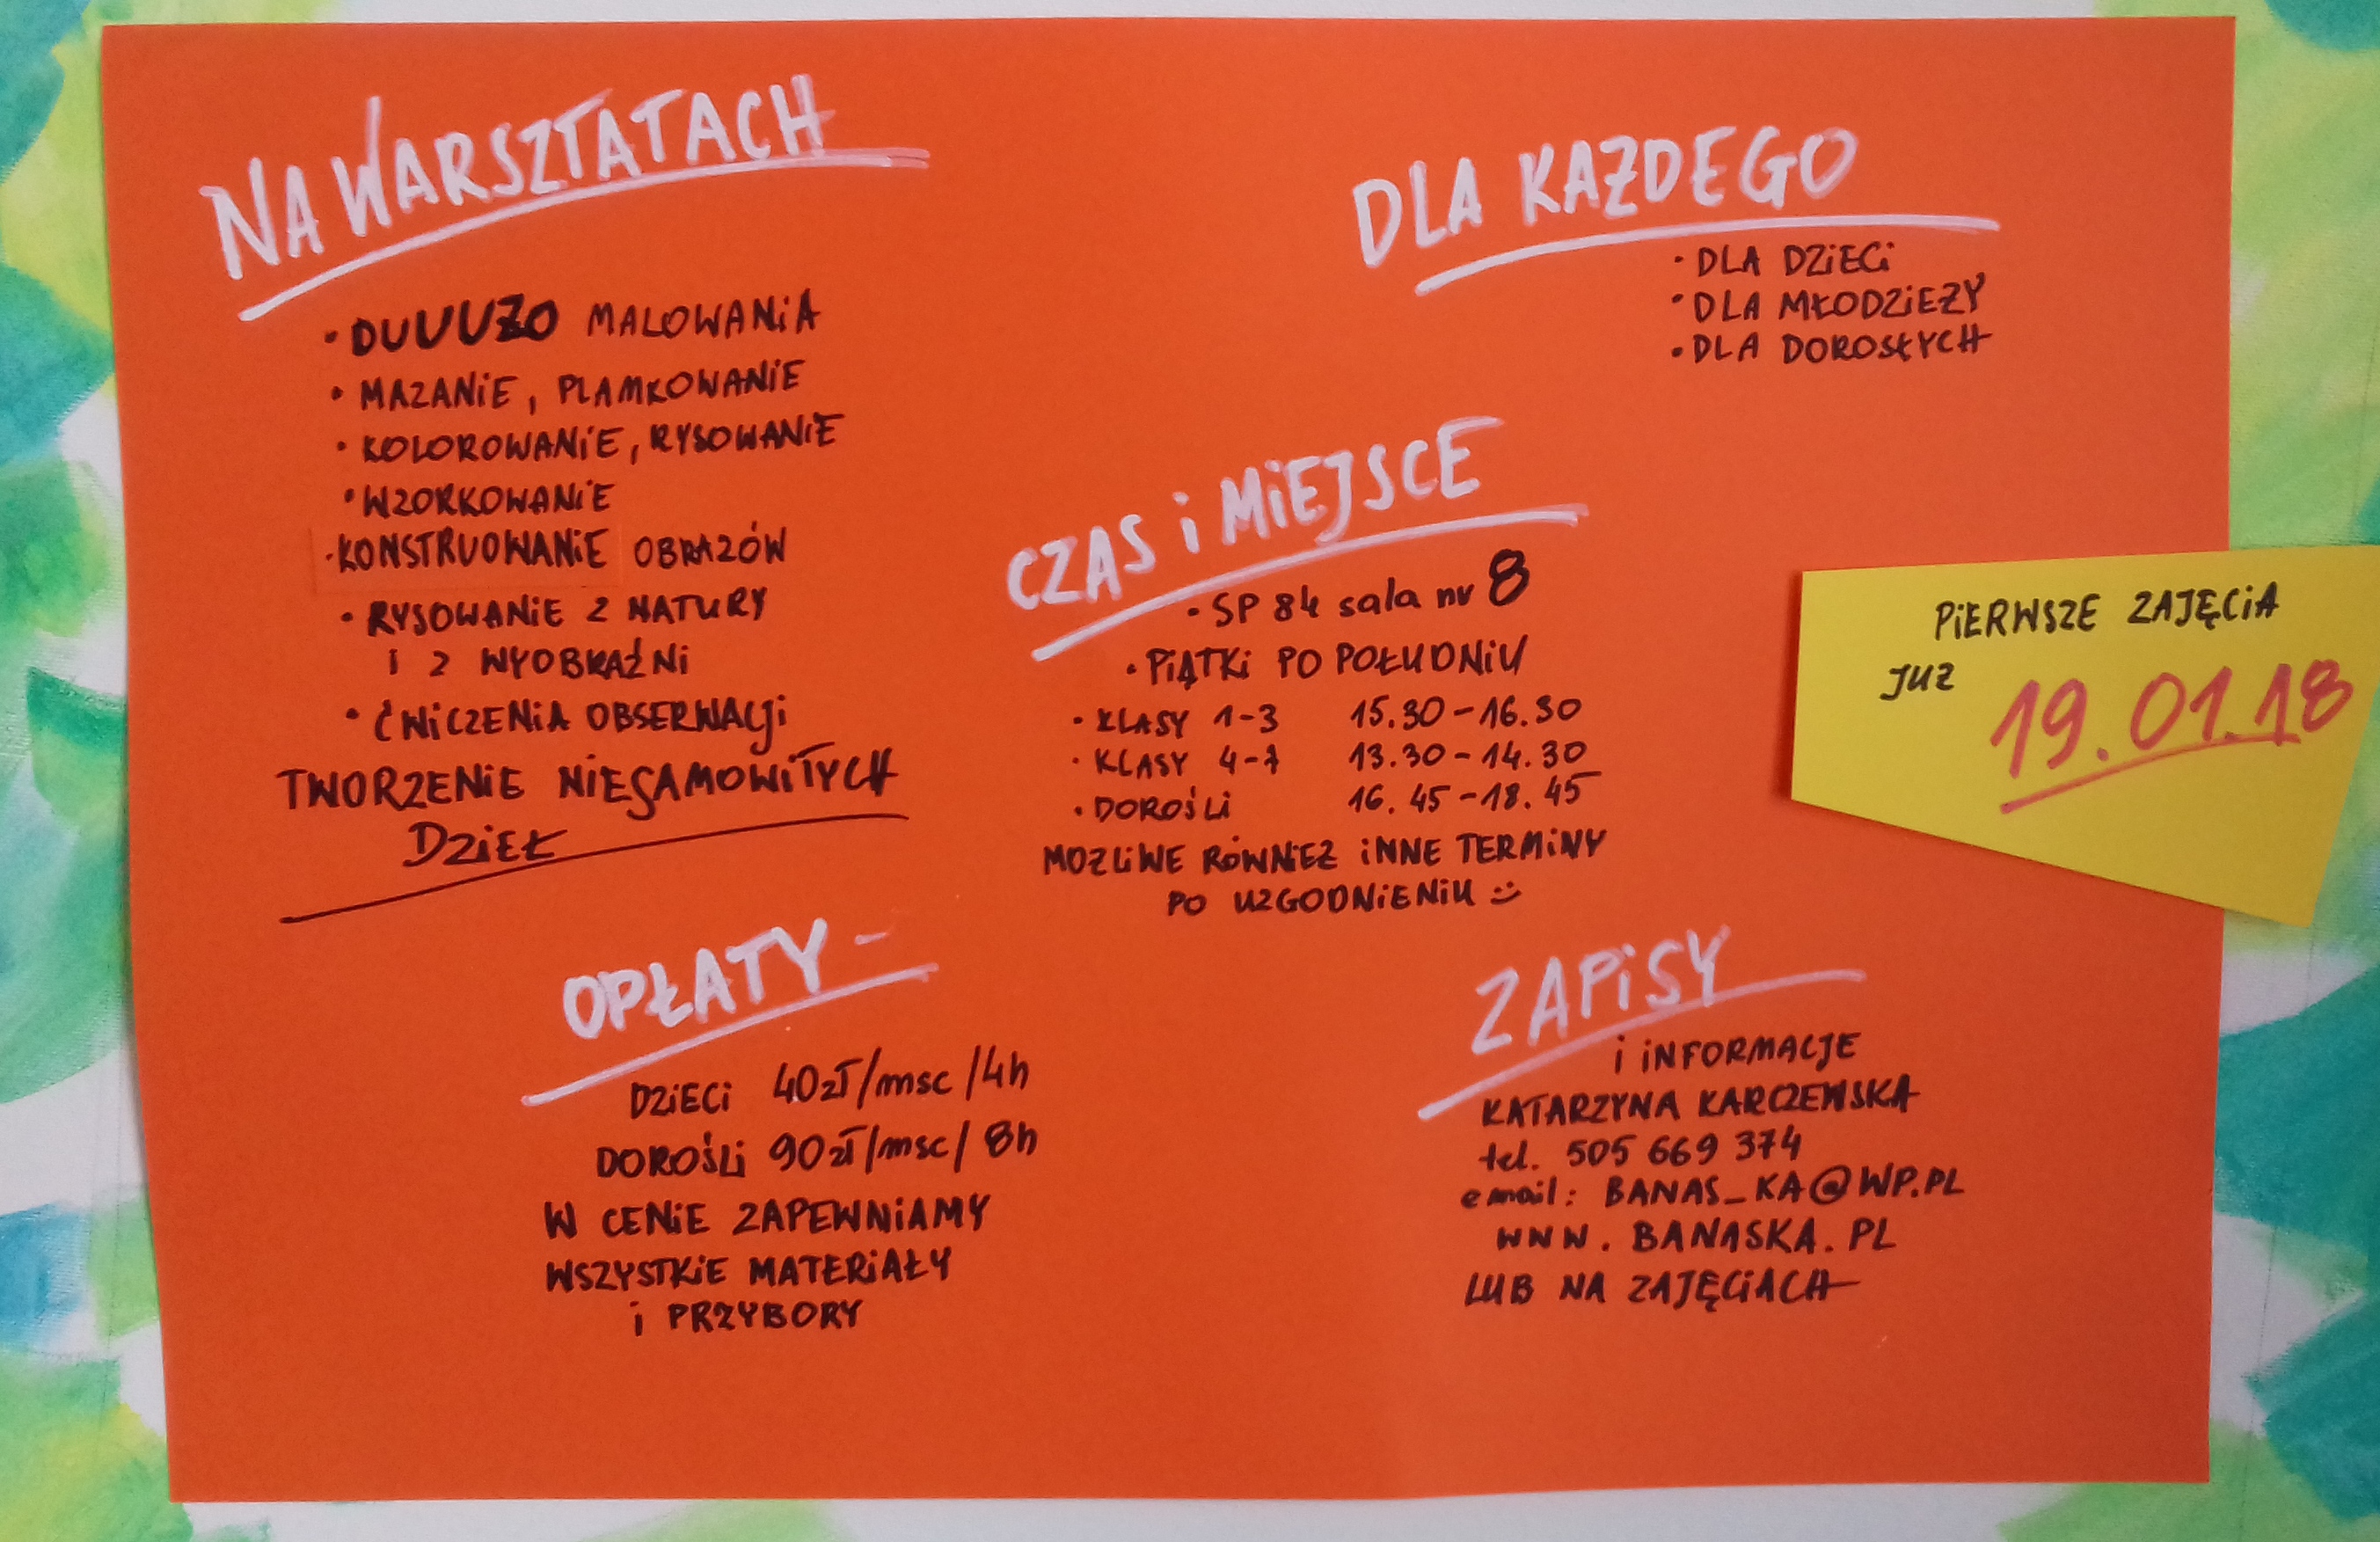 NA WARSZTATACH
• DUUUŻO MALOWANIA
• MAZANIE, PLAMKOWANIE
• KOLOROWANIE, RYSOWANIE
• WZORKOWANIE
• KONSTRUOWANIE OBRAZÓW
• RYSOWANIE Z NATURY
I Z WYOBRAŹNI
• ĆWICZENIA OBSERWACJI
TWORZENIE NIESAMOWITYCH
DZIEŁ
DLA KAŻDEGO
• DLA DZIECI
• DLA MŁODZIEŻY
• DLA DOROSŁYCH
CZAS i MIEJSCE
• SP 84 sala nr 8
• PIĄTKI PO POŁUDNIU
• KLASY 1-3 15.30-16.30
• KLASY 4-7 13.30-14.30
• DOROŚLI 16.45-18.45
MOŻLIWE RÓWNIEŻ INNE TERMINY
PO UZGODNIENIU :)
PIERWSZE ZAJĘCIA
JUŻ 19.01.18
OPŁATY -
DZIECI 40zł/msc/4h
DOROŚLI 90zł/msc/8h
W CENIE ZAPEWNIAMY
WSZYSTKIE MATERIAŁY
i PRZYBORY
ZAPISY
i INFORMACJE
KATARZYNA KARCZEWSKA
tel. 505 669 374
email: BANAS_KA@WP.PL
WWW.BANASKA.PL
LUB NA ZAJĘCIACH